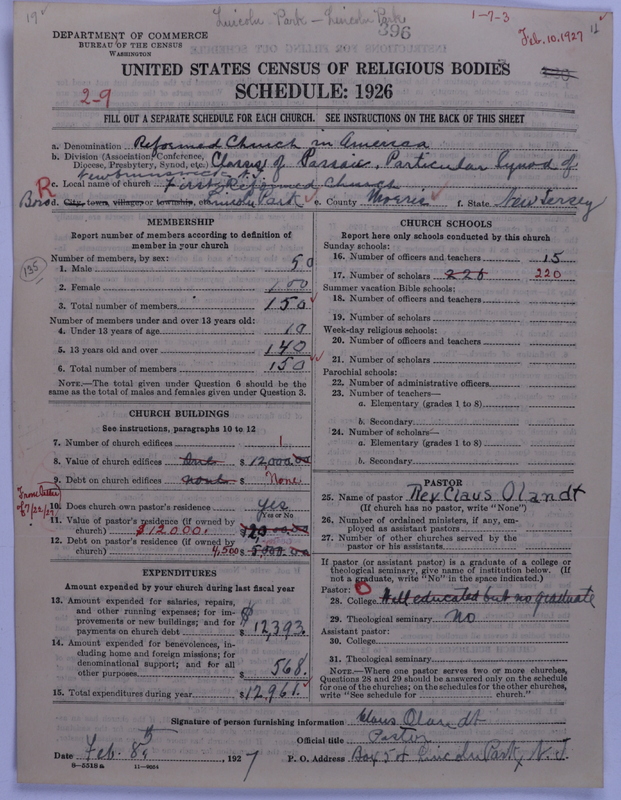 19 ✓ Lincoln Park - Lincoln Park 1-7-3
396 Feb. 10. 1927 11
DEPARTMENT OF COMMERCE
BUREAU OF THE CENSUS
WASHINGTON
UNITED STATES CENSUS OF RELIGIOUS BODIES
SCHEDULE: 1926
2-9
FILL OUT A SEPARATE SCHEDULE FOR EACH CHURCH. SEE INSTRUCTIONS ON THE BACK OF THIS SHEET
a. Denomination Reformed Church in America
b. Division (Association, Conference, Diocese, Presbytery, Synod, etc.) Classis of Passaic, Particular Synod of
New Brunswick N.J.
R c. Local name of church First Reformed Church
Boro d. City, town, village, or township, etc. Lincoln Park ✓ e. County Morris ✓ f. State New Jersey
MEMBERSHIP
Report number of members according to definition of
member in your church
Number of members, by sex:
135
1. Male 50
2. Female 100
3. Total number of members 150 ✓
Number of members under and over 13 years old:
4. Under 13 years of age 10
5. 13 years old and over 140
6. Total number of members 150
NOTE.—The total given under Question 6 should be
same as the total of males and females given under Question 3.
CHURCH BUILDINGS
See instructions, paragraphs 10 to 12
7. Number of church edifices 1
8. Value of church edifices $ 12,000.00
9. Debt on church edifices none $ None
10. Does church own pastor's residence yes
Yes or No
11. Value of pastor's residence (if owned by
church) $12,000. $
12. Debt on pastor's residence (if owned by
church) 4,500 $ 5,000.00
EXPENDITURES
Amount expended by your church during last fiscal year
13. Amount expended for salaries, repairs,
and other running expenses; for im-
provements or new buildings; and for
payments on church debt $ 12,393.
14. Amount expended for benevolences, in-
cluding home and foreign missions; for
denominational support; and for all
other purposes $ 568.
15. Total expenditures during year $ 12,961. ✓
CHURCH SCHOOLS
Report here only schools conducted by this church
Sunday schools:
16. Number of officers and teachers 15
17. Number of scholars 220
Summer vacation Bible schools:
18. Number of officers and teachers
19. Number of scholars
Week-day religious schools:
20. Number of officers and teachers
21. Number of scholars
Parochial schools:
22. Number of administrative officers
23. Number of teachers—
a. Elementary (grades 1 to 8)
b. Secondary
24. Number of scholars—
a. Elementary (grades 1 to 8)
b. Secondary
PASTOR
25. Name of pastor Rev Claus Olandt
(If church has no pastor, write "None")
26. Number of ordained ministers, if any, em-
ployed as assistant pastors
27. Number of other churches served by the
pastor or his assistants
If pastor (or assistant pastor) is a graduate of a college or
theological seminary, give name of institution below. (If
not a graduate, write "No" in the space indicated.)
Pastor: 0
28. College Well educated but no graduate
29. Theological seminary No
Assistant pastor:
30. College
31. Theological seminary
NOTE.—Where one pastor serves two or more churches,
Questions 28 and 29 should be answered only on the schedule
for one of the churches; on the schedules for the other churches,
write "See schedule for church."
Signature of person furnishing information Claus Olandt
Official title Pastor
Date Feb. 8th, 1927 P. O. Address Box 54 Lincoln Park, N. J.
9-5518a 11-9664